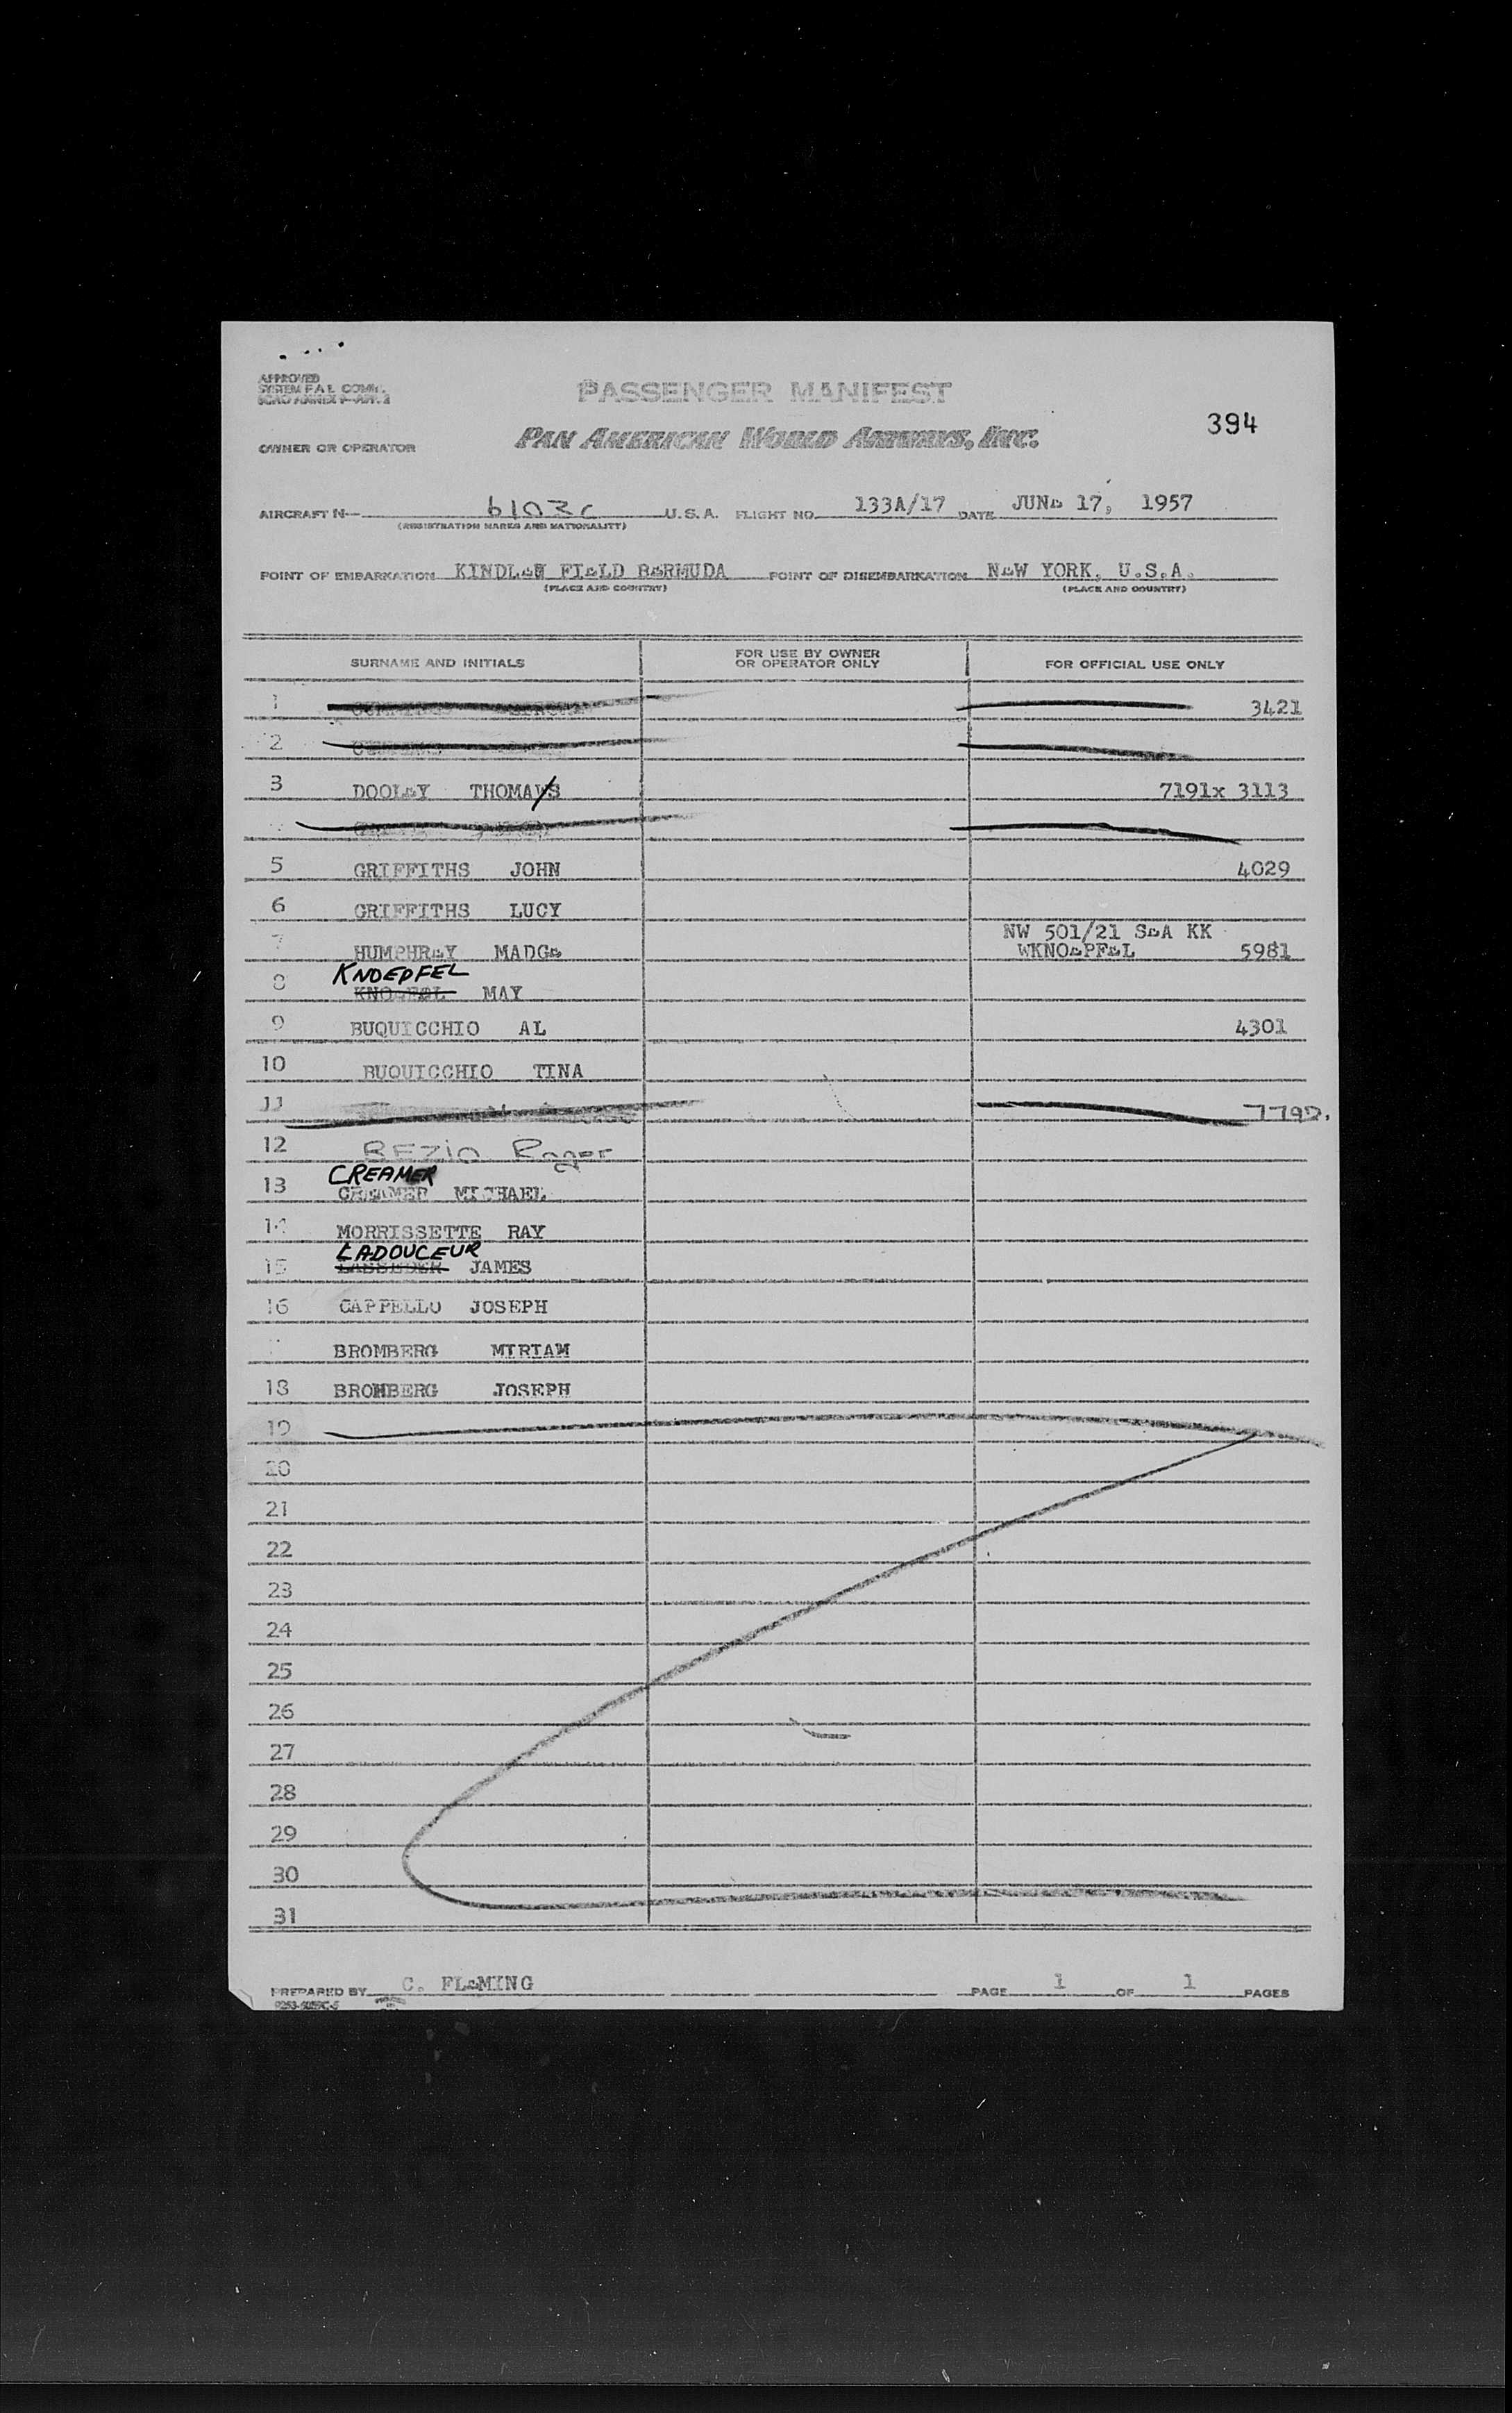 APPROVED
SYSTEM F.A.L. COMM.
ICAO ANNEX 9—APP. 2
PASSENGER MANIFEST
394
OWNER OR OPERATOR PAN AMERICAN WORLD AIRWAYS, INC.
AIRCRAFT N— 6103C U.S.A. FLIGHT NO. 133A/17 DATE JUNE 17, 1957
(REGISTRATION MARKS AND NATIONALITY)
POINT OF EMBARKATION KINDLEW FIELD BERMUDA POINT OF DISEMBARKATION NEW YORK, U.S.A.
(PLACE AND COUNTRY) (PLACE AND COUNTRY)
SURNAME AND INITIALS FOR USE BY OWNER OR OPERATOR ONLY FOR OFFICIAL USE ONLY
1 3421
2
3 DOOLEY THOMAS 7191x 3113
5 GRIFFITHS JOHN 4029
6 GRIFFITHS LUCY
NW 501/21 SEA KK
7 HUMPHREY MADGE WKNOEPFEL 5981
KNOEPFEL
8 MAY
9 BUQUICCHIO AL 4301
10 BUQUICCHIO TINA
11 7792.
12 BEZIO Roger
CREAMER
13 CREAMER MICHAEL
14 MORRISSETTE RAY
LADOUCEUR
15 JAMES
16 CAPPELLO JOSEPH
BROMBERG MIRIAM
18 BROMBERG JOSEPH
19
20
21
22
23
24
25
26
27
28
29
30
31
PREPARED BY C. FLEMING PAGE 1 OF 1 PAGES